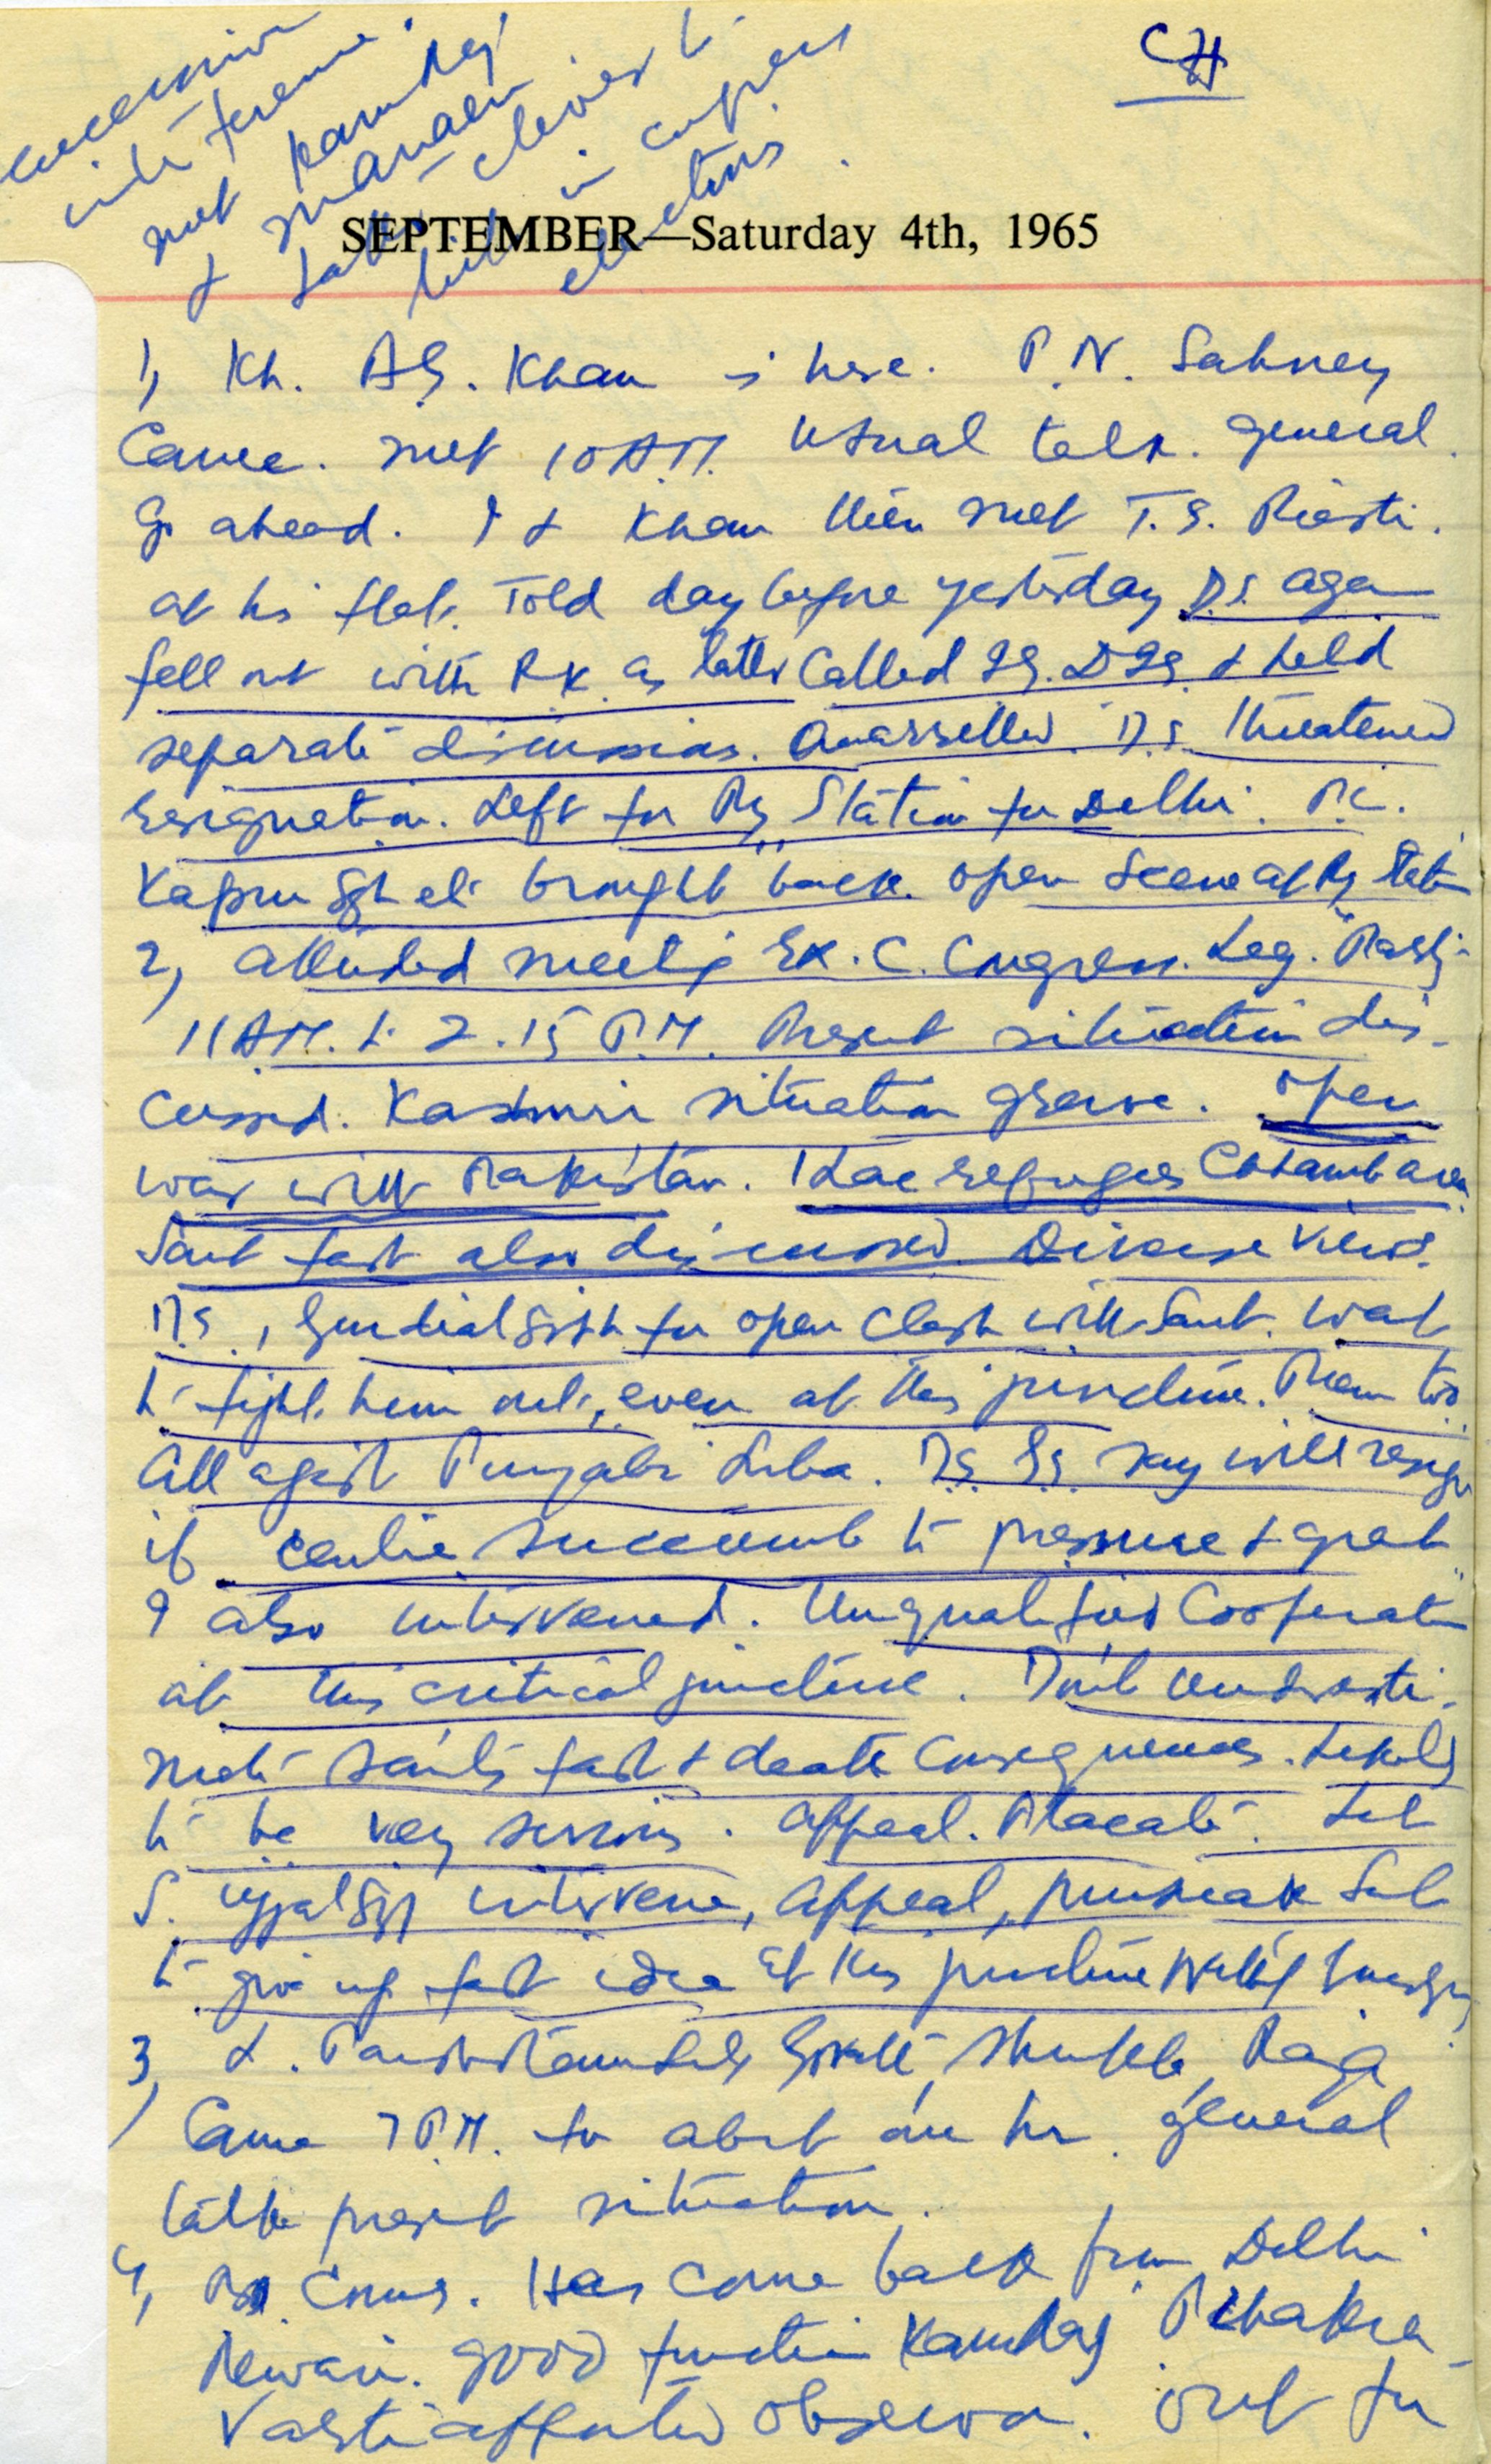 CH
interference
met Kamraj
&
in congress
elections
SEPTEMBER—Saturday 4th, 1965
1, Kh. A.G. Khan is here. P.N. Sahney
Came. met 10 A.M. usual talk. general.
Go ahead. I & Khan then met T.S. Riasti.
at his flat. Told day before yesterday D.S. again
fell out with RK as latter Called I.G. DIG & held
separate discussions. Quarrelled. D.S. threatened
resignation. Left for Ry Station for Delhi. P.C.
Kapur Sgh etc brought back. open Scene at Ry Station
2, attended meeting Ex. C. Congress. Leg. Party
11 A.M. to 2.15 P.M. Present situation dis-
cussed. Kashmir situation grave. open
war with Pakistan. 1 Lac refugees Chhamb area.
Sant fast also discussed. Diverse views.
D.S., Gurdial Singh for open clash with Sant. want
to fight him out, even at this juncture. Prem too
All against Punjabi Suba. D.S. G.S. say will resign
if centre succumb to pressure & grant
I also intervened. Unqualified Cooperation
at this critical juncture. Don't underesti-
mate Sant's fast & death Consequences. Likely
to be very serious. Appeal. Placate. Let
S. Ujjal Sgh intervene, appeal, persuade Sant
to give up fast idea at this juncture
3, L. Shukla, Raja
Came 7 P.M. for about one hr. general
talk present situation.
4, Comes. Has come back from Delhi
Rewari. good function Kamraj
observer. out for